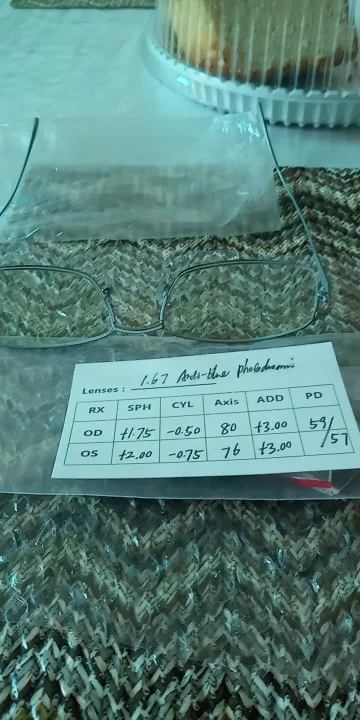 Lenses : 1.67 Anti-blue photochromic
RX SPH CYL Axis ADD PD
OD +1.75 -0.50 80 +3.00 59/57
OS +2.00 -0.75 76 +3.00